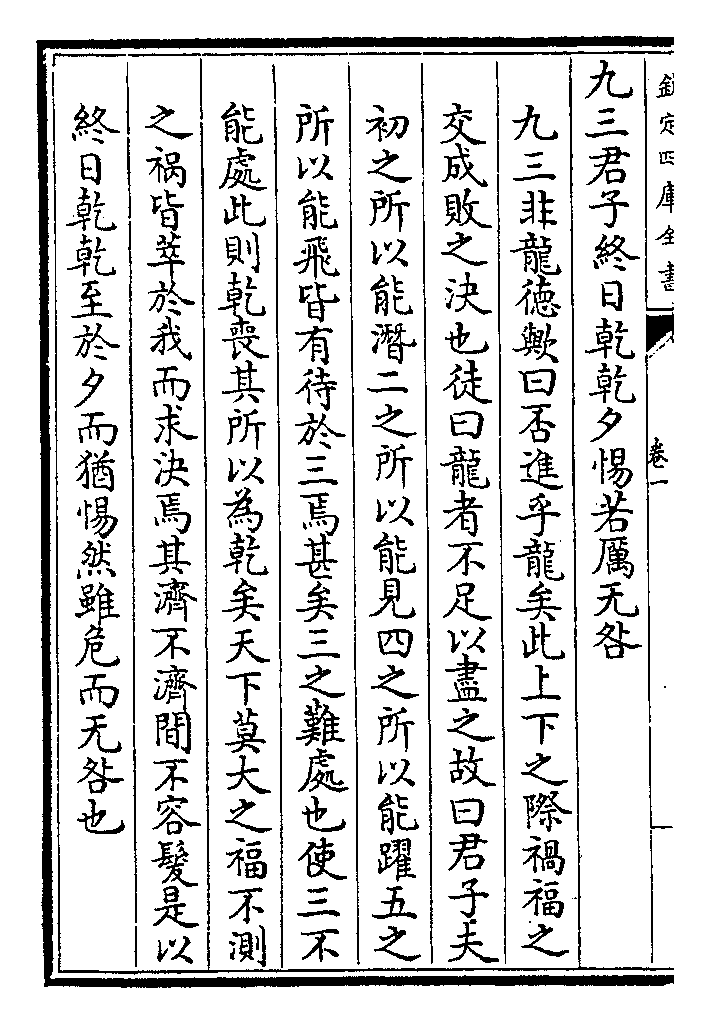 欽定四庫全書
卷一
九三君子終日乾乾夕惕若厲无咎
九三非龍徳歟曰否進乎龍矣此上下之際禍福之
交成敗之決也徒曰龍者不足以盡之故曰君子夫
初之所以能潛二之所以能見四之所以能躍五之
所以能飛皆有待於三焉甚矣三之難處也使三不
能處此則乾喪其所以為乾矣天下莫大之福不測
之禍皆萃於我而求決焉其濟不濟間不容髮是以
終日乾乾至於夕而猶惕然雖危而无咎也